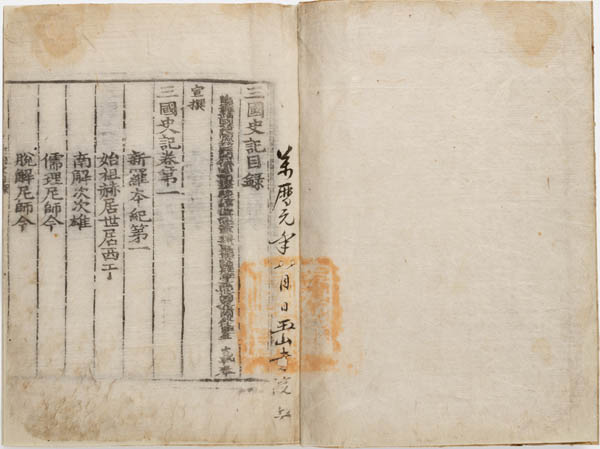 萬曆元年八月日 玉山書院上
三國史記目錄
宣撰
三國史記卷第一
新羅本紀第一
始祖赫居世居西干
南解次次雄
儒理尼師今
脫解尼師今